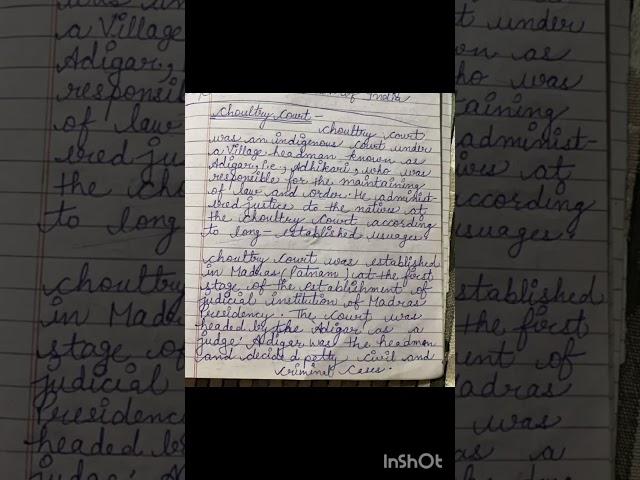 of India
Choultry Court -
choultry court
was an indigenous court under
a Village headman known as
Adigar, i.e., Adhikari, who was
responsible for the maintaining
of law and order. He administ-
ered justice to the natives at
the choultry court according
to long-established usuages.
choultry court was established
in Madras (Patnam) at the first
stage of the establishment of
judicial institution of Madras
Presidency. The court was
headed by the Adigar as a
judge. Adigar was the headman
and decided petty civil and
criminal cases.
InShOt